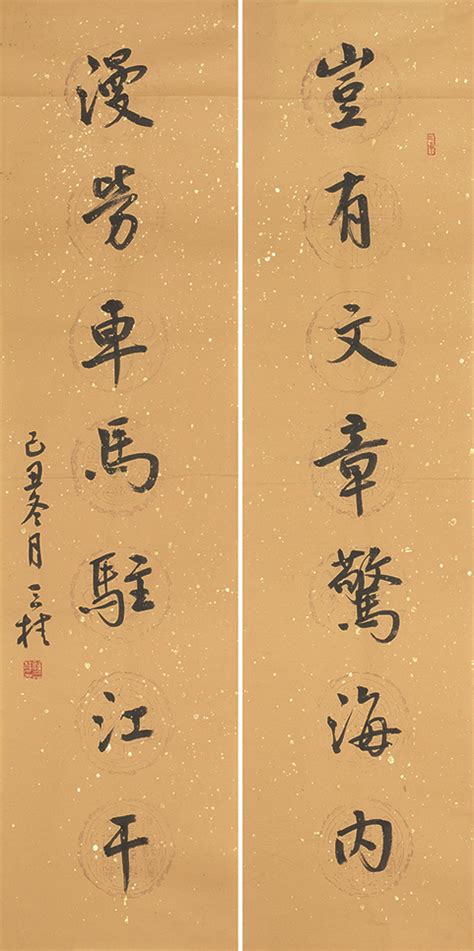 豈有文章驚海内
漫勞車馬駐江干
己丑冬月